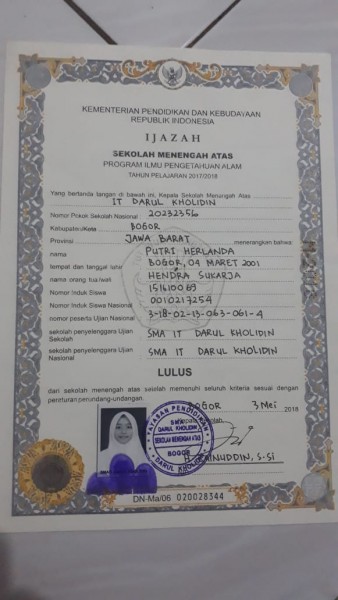 KEMENTERIAN PENDIDIKAN DAN KEBUDAYAAN
REPUBLIK INDONESIA
IJAZAH
SEKOLAH MENENGAH ATAS
PROGRAM ILMU PENGETAHUAN ALAM
TAHUN PELAJARAN 2017/2018
Yang bertanda tangan di bawah ini, Kepala Sekolah Menengah Atas
IT DARUL KHOLIDIN
Nomor Pokok Sekolah Nasional 20232356
Kabupaten/Kota BOGOR
Provinsi JAWA BARAT menerangkan bahwa:
nama PUTRI HERLANDA
tempat dan tanggal lahir BOGOR, 04 MARET 2001
nama orang tua/wali HENDRA SUKARJA
Nomor Induk Siswa 151610069
Nomor Induk Siswa Nasional 0010217254
nomor peserta Ujian Nasional 3-18-02-13-063-061-4
sekolah penyelenggara Ujian Sekolah SMA IT DARUL KHOLIDIN
sekolah penyelenggara Ujian Nasional SMA IT DARUL KHOLIDIN
LULUS
dari sekolah menengah atas setelah memenuhi seluruh kriteria sesuai dengan
peraturan perundang-undangan.
BOGOR 3 Mei 2018
Kepala Sekolah,
YAYASAN PENDIDIKAN
DARUL KHOLIDIN
SEKOLAH MENENGAH ATAS
BOGOR
S.Si
DN-Ma/06 020028344